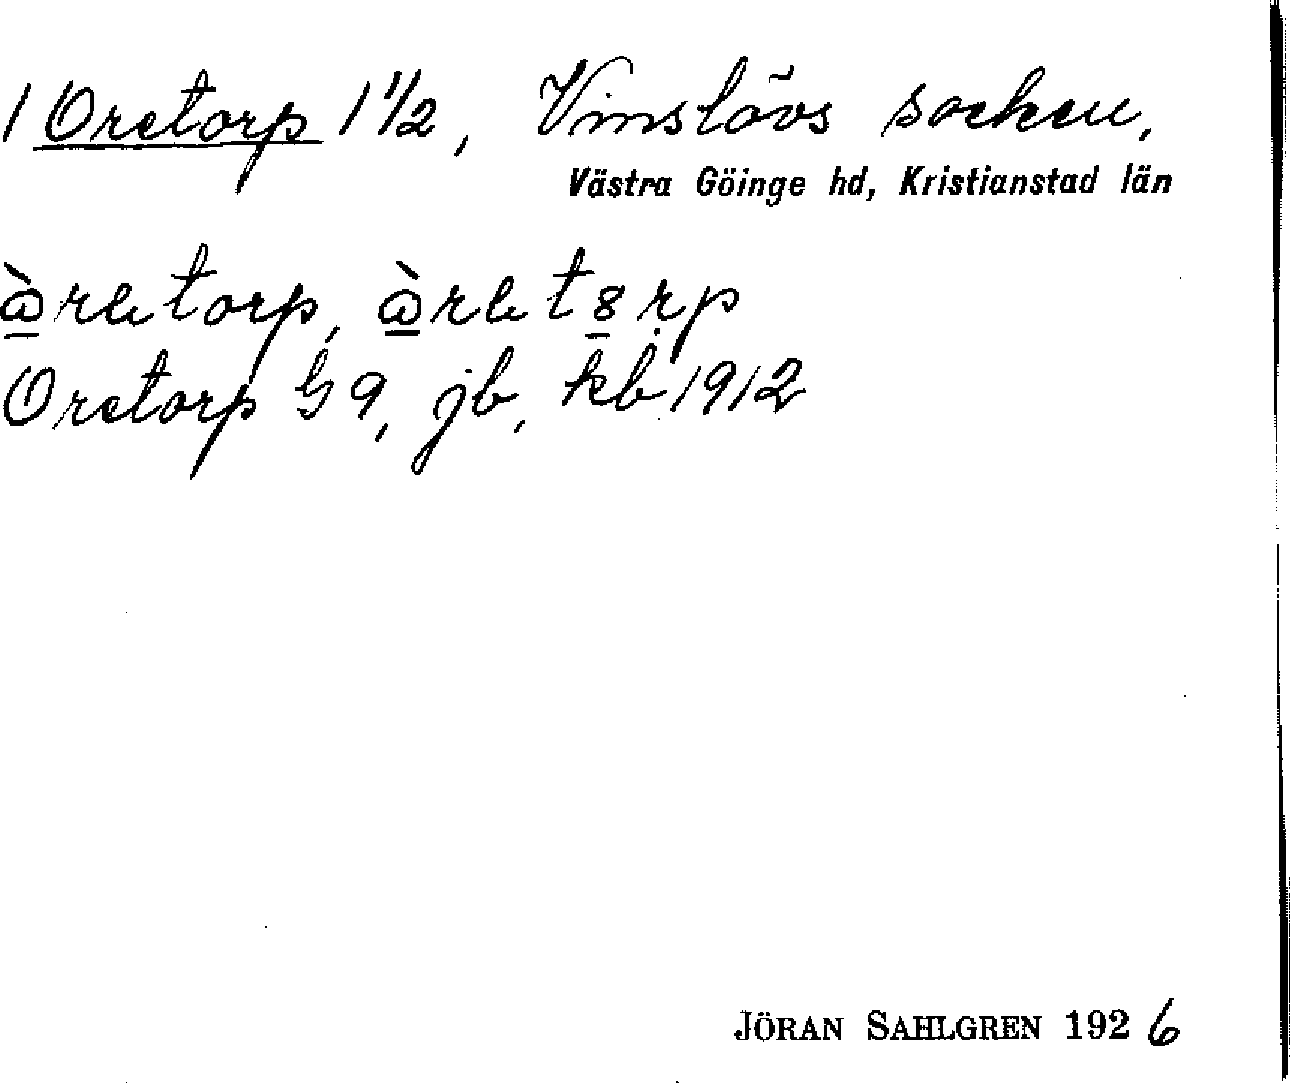 1 Oretorp 1 1/2, Vinslövs socken,
Västra Göinge hd, Kristianstad län
Oretorp G9, jb, kb 1912
JÖRAN SAHLGREN 1926